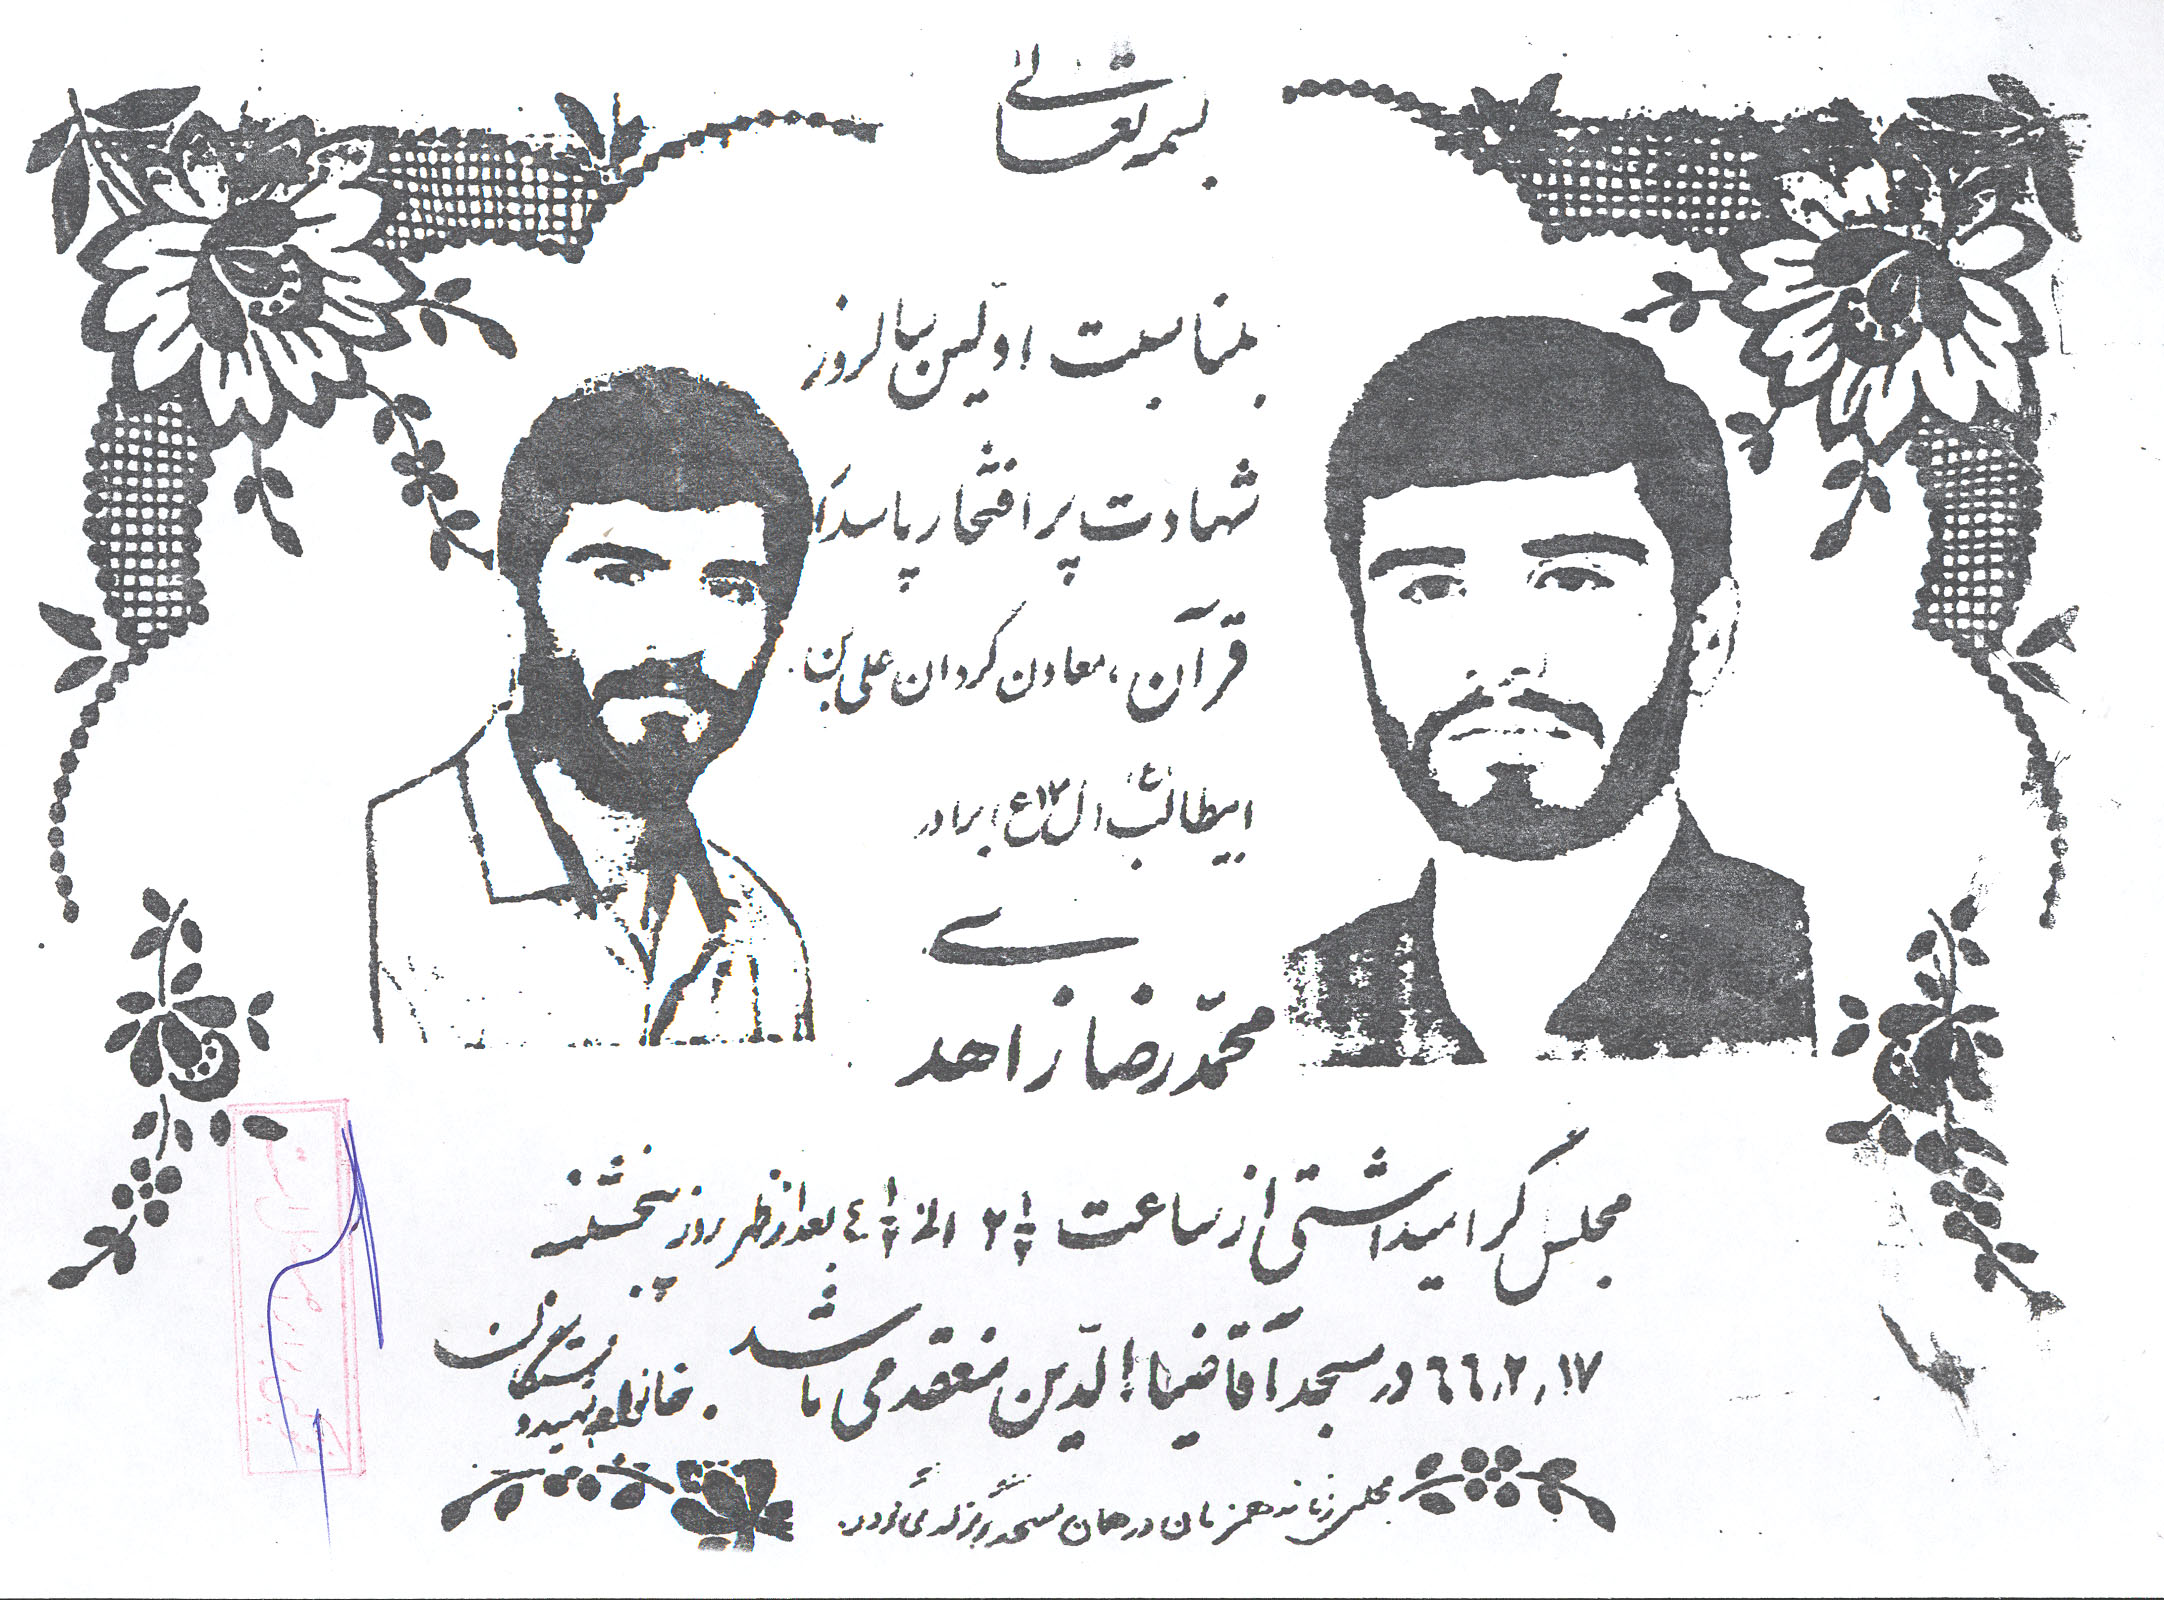 بسمه تعالی
بمناسبت اولین سالروز
شهادت پر افتخار پاسدار
قرآن، معاون گردان علی بن
ابیطالب (ع) ل ۱۷ ع ا برادر
محمّدرضا زاهدی
مجلس گرامیداشتی از ساعت ۲ ۱/۲ الی ۴ ۱/۲ بعدازظهر روز پنجشنبه
۶۶٫۲٫۱۷ در مسجد آقا ضیاءالدّین منعقد می باشد.
خانواده شهید و بستگان
مجلس زنانه همزمان در همان مسجد برگزار می گردد.